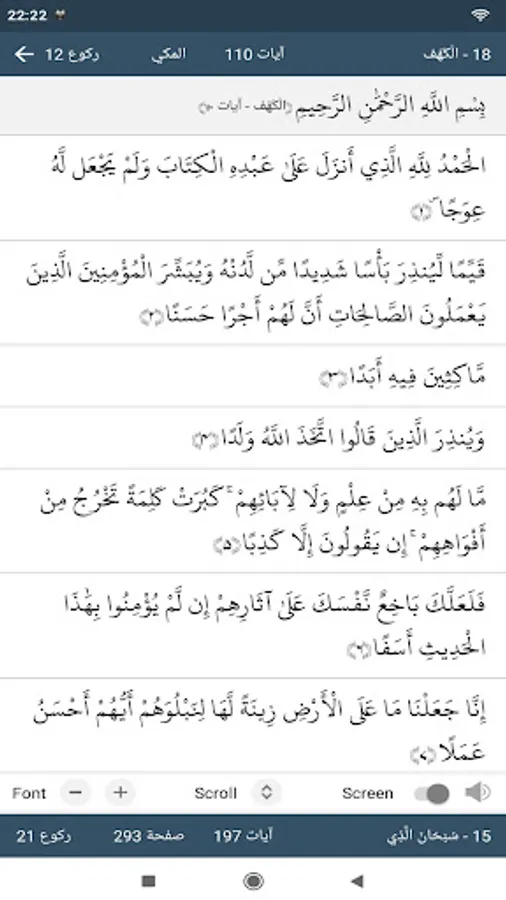 22:22
18 - الْكَهْف آيات 110 المكي ركوع 12
بِسْمِ اللَّهِ الرَّحْمَٰنِ الرَّحِيمِ (الْكَهْف - آيات
الْحَمْدُ لِلَّهِ الَّذِي أَنزَلَ عَلَىٰ عَبْدِهِ الْكِتَابَ وَلَمْ يَجْعَل لَّهُ
عِوَجًا ۜ ﴿١﴾
قَيِّمًا لِّيُنذِرَ بَأْسًا شَدِيدًا مِّن لَّدُنْهُ وَيُبَشِّرَ الْمُؤْمِنِينَ الَّذِينَ
يَعْمَلُونَ الصَّالِحَاتِ أَنَّ لَهُمْ أَجْرًا حَسَنًا ﴿٢﴾
مَّاكِثِينَ فِيهِ أَبَدًا ﴿٣﴾
وَيُنذِرَ الَّذِينَ قَالُوا اتَّخَذَ اللَّهُ وَلَدًا ﴿۴﴾
مَّا لَهُم بِهِ مِنْ عِلْمٍ وَلَا لِآبَائِهِمْ ۚ كَبُرَتْ كَلِمَةً تَخْرُجُ مِنْ
أَفْوَاهِهِمْ ۚ إِن يَقُولُونَ إِلَّا كَذِبًا ﴿۵﴾
فَلَعَلَّكَ بَاخِعٌ نَّفْسَكَ عَلَىٰ آثَارِهِمْ إِن لَّمْ يُؤْمِنُوا بِهَٰذَا
الْحَدِيثِ أَسَفًا ﴿۶﴾
إِنَّا جَعَلْنَا مَا عَلَى الْأَرْضِ زِينَةً لَّهَا لِنَبْلُوَهُمْ أَيُّهُمْ أَحْسَنُ
عَمَلًا ﴿٧﴾
Font − + Scroll Screen
15 - سُبْحَانَ الَّذِي آيات 197 صفحة 293 ركوع 21